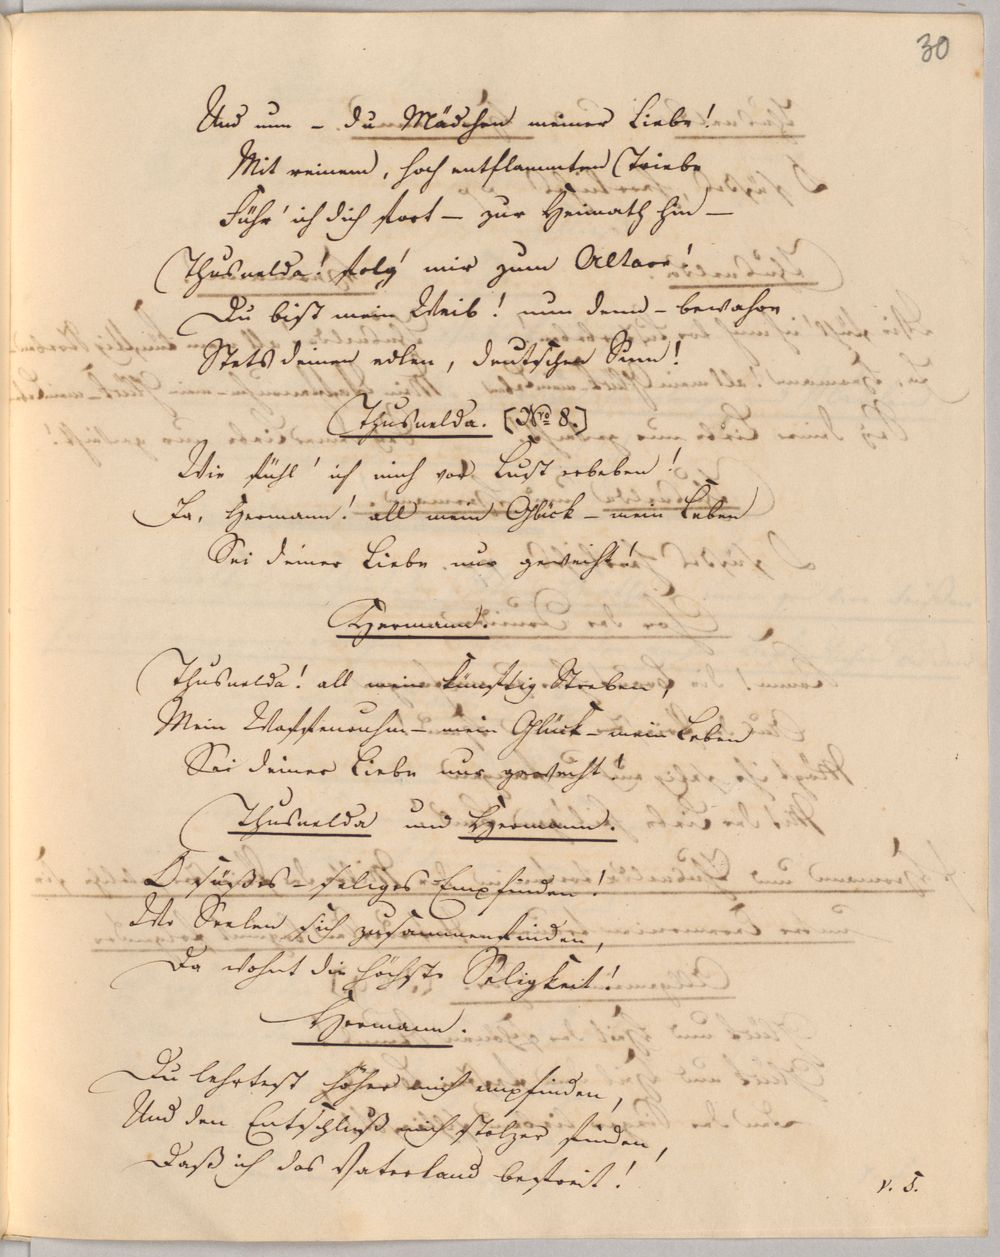 30
Und nun – du Mädchen meiner Liebe!
Mit reinem, hoch entflammten Triebe
Führ' ich dich fort – zur Heimath hin –
Thusnelda! folg' mir zum Altare!
Du bist mein Weib! nun denn – bewahre
Stets deinen edlen, deutschen Sinn!
Thusnelda. [Nro 8.]
Wie fühl' ich mich vor Lust erbeben!
Ja, Hermann! all mein Glück – mein Leben
Sei deiner Liebe nur geweiht!
Hermann.
Thusnelda! all mein künftig Streben,
Mein Waffenruhm – mein Glück – mein Leben
Sei deiner Liebe nur geweiht!
Thusnelda und Hermann.
O süßes – seliges Empfinden!
Wo Seelen sich zusammenfinden,
Da wohnt die höchste Seligkeit!
Hermann.
Du lehrtest höher mich empfinden,
Und den Entschluß mich stolzer finden,
Daß ich das Vaterland befreit!
v. S.